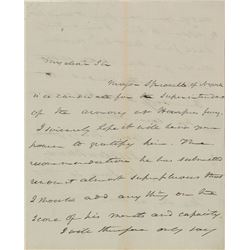 My dear Sir
Major Sprowle of
is a candidate for the Superintendence
of the armory at Harpers ferry.
I sincerely hope it will be in your
power to gratify him. The
recommendations he has submitted
render it almost superfluous that
I should add any thing on the
score of his merits and capacity.
I will therefore only say